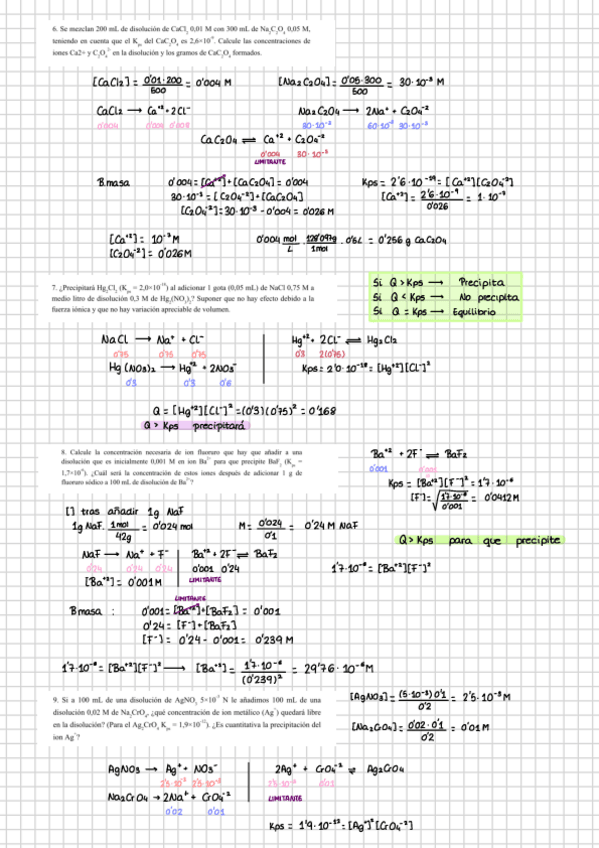 6. Se mezclan 200 mL de disolución de CaCl₂ 0,01 M con 300 mL de Na₂C₂O₄ 0,05 M,
teniendo en cuenta que el Kps del CaC₂O₄ es 2,6×10⁻⁹. Calcule las concentraciones de
iones Ca2+ y C₂O₄²⁻ en la disolución y los gramos de CaC₂O₄ formados.
[CaCl2] = 0'01·200 / 500 = 0'004 M [Na2C2O4] = 0'05·300 / 500 = 30·10⁻³ M
CaCl2 → Ca⁺² + 2Cl⁻ Na2C2O4 → 2Na⁺ + C2O4⁻²
0'004 0'004 0'008 30·10⁻³ 60·10⁻³ 30·10⁻³
CaC2O4 ⇌ Ca⁺² + C2O4⁻²
0'004 30·10⁻³
LIMITANTE
B.masa 0'004 = [Ca⁺²] + [CaC2O4] = 0'004 Kps = 2'6·10⁻⁵⁹ = [Ca⁺²][C2O4⁻²]
30·10⁻³ = [C2O4⁻²] + [CaC2O4] [Ca⁺²] = 2'6·10⁻⁹ / 0'026 = 1·10⁻⁷
[C2O4⁻²] = 30·10⁻³ - 0'004 = 0'026 M
[Ca⁺²] = 10⁻⁷ M 0'004 mol/L · 128'097g/1mol · 0'5L = 0'256 g CaC2O4
[C2O4⁻²] = 0'026 M
7. ¿Precipitará Hg₂Cl₂ (Kps = 2,0×10⁻¹⁸) al adicionar 1 gota (0,05 mL) de NaCl 0,75 M a
medio litro de disolución 0,3 M de Hg₂(NO₃)₂? Suponer que no hay efecto debido a la
fuerza iónica y que no hay variación apreciable de volumen.
Si Q > Kps → Precipita
Si Q < Kps → No precipita
Si Q = Kps → Equilibrio
NaCl → Na⁺ + Cl⁻ Hg⁺² + 2Cl⁻ ⇌ Hg2Cl2
0'75 0'75 0'75 0'3 2(0'75)
Hg(NO3)2 → Hg⁺² + 2NO3⁻ Kps = 2'0·10⁻¹⁸ = [Hg⁺²][Cl⁻]²
0'3 0'3 0'6
Q = [Hg⁺²][Cl⁻]² = (0'3)(0'75)² = 0'168
Q > Kps precipitará
8. Calcule la concentración necesaria de ion fluoruro que hay que añadir a una
disolución que es inicialmente 0,001 M en ion Ba²⁺ para que precipite BaF₂ (Kps =
1,7×10⁻⁶). ¿Cuál será la concentración de estos iones después de adicionar 1 g de
fluoruro sódico a 100 mL de disolución de Ba²⁺?
Ba⁺² + 2F⁻ ⇌ BaF2
0'001 0'001
Kps = [Ba⁺²][F⁻]² = 1'7·10⁻⁶
[F⁻] = √(1'7·10⁻⁶ / 0'001) = 0'0412 M
[] tras añadir 1g NaF
1g NaF · 1mol / 42g = 0'024 mol M = 0'024 / 0'1 = 0'24 M NaF
Q > Kps para que precipite
NaF → Na⁺ + F⁻ Ba⁺² + 2F⁻ ⇌ BaF2
0'24 0'24 0'24 0'001 0'24 1'7·10⁻⁶ = [Ba⁺²][F⁻]²
[Ba⁺²] = 0'001 M LIMITANTE
LIMITANTE
B masa : 0'001 = [Ba⁺²] + [BaF2] = 0'001
0'24 = [F⁻] + [BaF2]
[F⁻] = 0'24 - 0'001 = 0'239 M
1'7·10⁻⁶ = [Ba⁺²][F⁻]² → [Ba⁺²] = 1'7·10⁻⁶ / (0'239)² = 29'76·10⁻⁶ M
9. Si a 100 mL de una disolución de AgNO₃ 5×10⁻³ N le añadimos 100 mL de una
disolución 0,02 M de Na₂CrO₄, ¿qué concentración de ion metálico (Ag⁺) quedará libre
en la disolución? (Para el Ag₂CrO₄ Kps = 1,9×10⁻¹²). ¿Es cuantitativa la precipitación del
ion Ag⁺?
[AgNO3] = (5·10⁻³) 0'1 / 0'2 = 2'5·10⁻³ M
[Na2CrO4] = 0'02·0'1 / 0'2 = 0'01 M
AgNO3 → Ag⁺ + NO3⁻ 2Ag⁺ + CrO4⁻² ⇌ Ag2CrO4
2'5·10⁻³ 2'5·10⁻³ 2'5·10⁻³ 0'01
Na2CrO4 → 2Na⁺ + CrO4⁻² LIMITANTE
0'02 0'01
Kps = 1'9·10⁻¹² = [Ag⁺]²[CrO4⁻²]